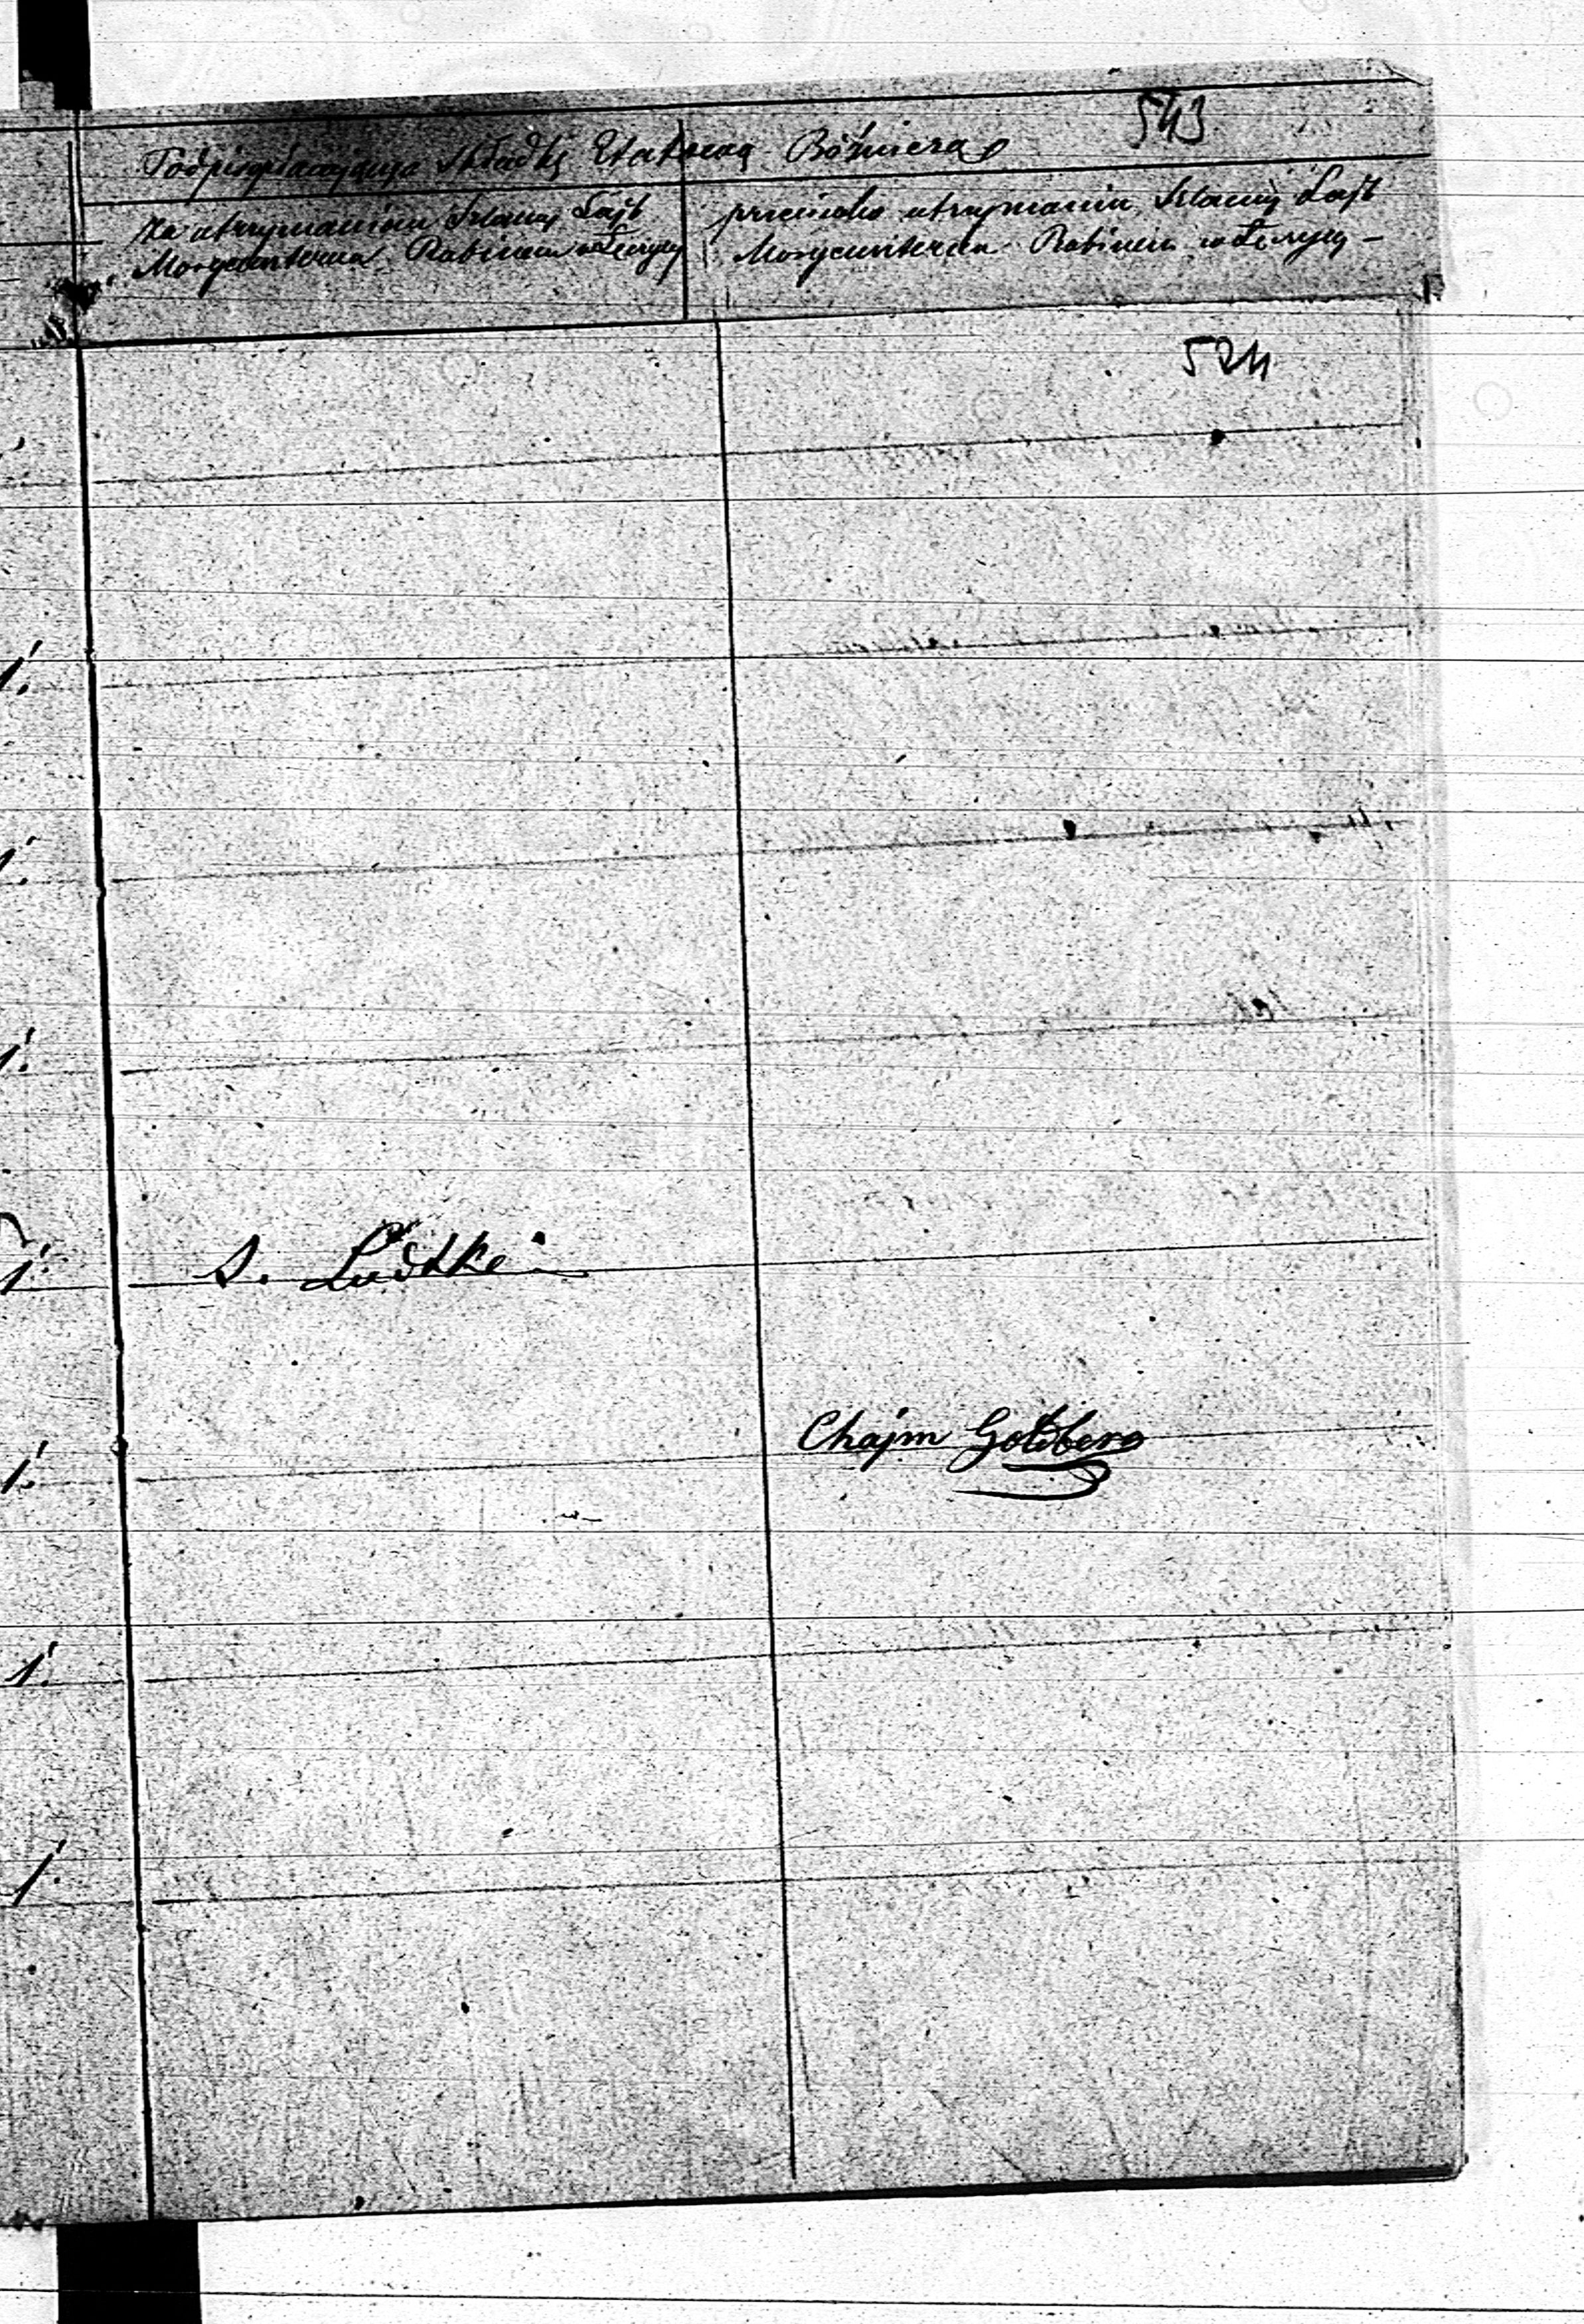 543
Podpis płacącego Składkę Etatową Bóżniczą
Za utrzymaniem Szlamy Lajb
Morgensterna Rabinem w Łęczycy
przeciwko utrzymaniu Szlamy Lajb
Morgensterna Rabinem w Łęczycy –
524
1.
1.
1.
1.
S. Lüdtke
1.
Chajm Goldberg
1.
1.